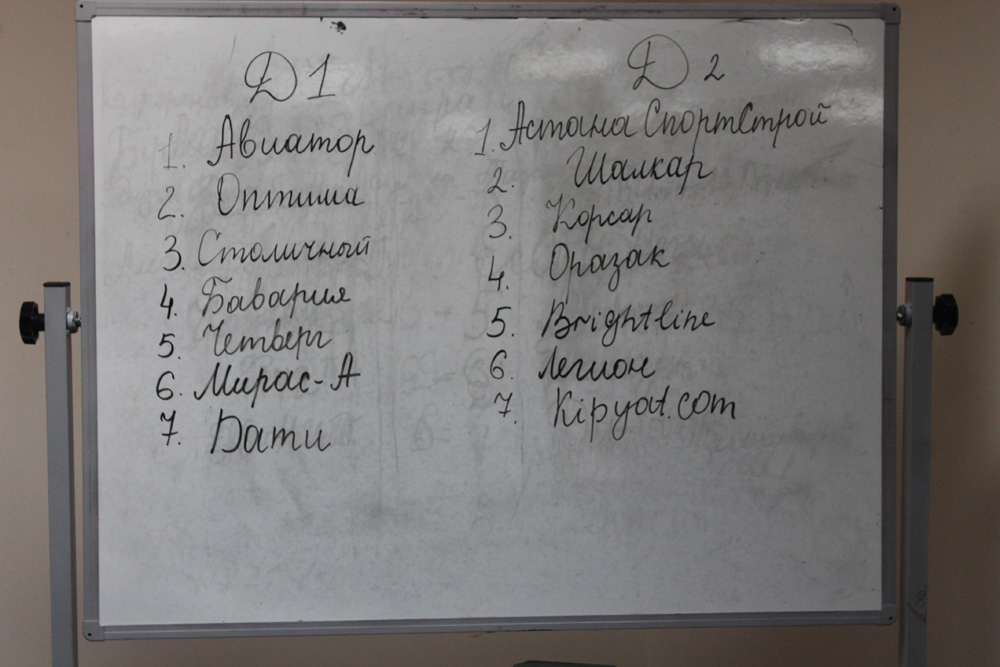 Д1
1. Авиатор
2. Оптима
3. Столичный
4. Бавария
5. Четверг
6. Мирас-А
7. Бати
Д 2
1. Астана СпортСтрой
2. Шалкар
3. Корсар
4. Оразак
5. Brightline
6. Легион
7. Kipyat.com